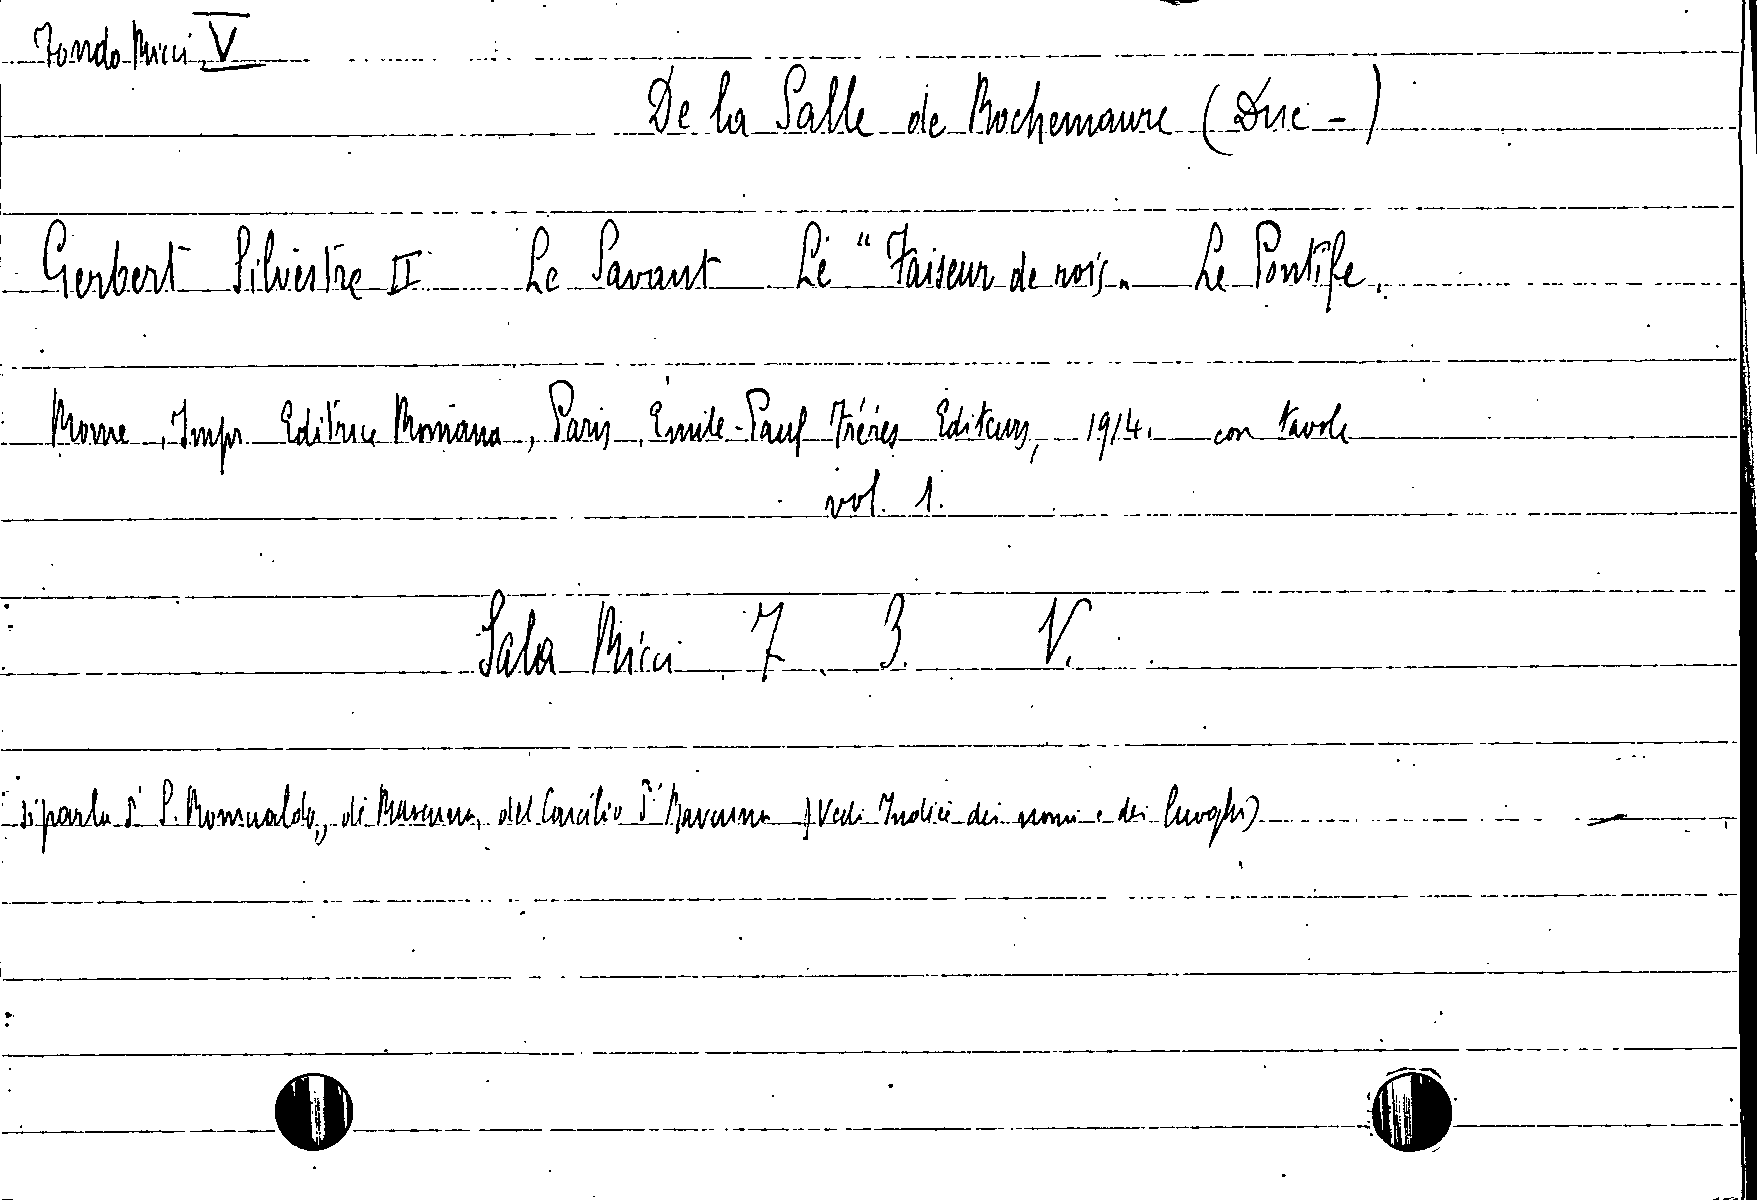 Fondo Ricci V
De la Salle de Rochemaure (Duc -)
Gerbert Silvestre II Le Savant Le "Faiseur de rois„ Le Pontife.
Rome, Impr. Editrice Romana, Paris, Émile-Paul Fréres Editeurs, 1914. con tavole
vol. 1.
Sala Ricci 7. 3. V.
si parla di S. Romualdo, di Ravenna, del Concilio di Ravenna (Vedi Indici dei nomi e dei luoghi)